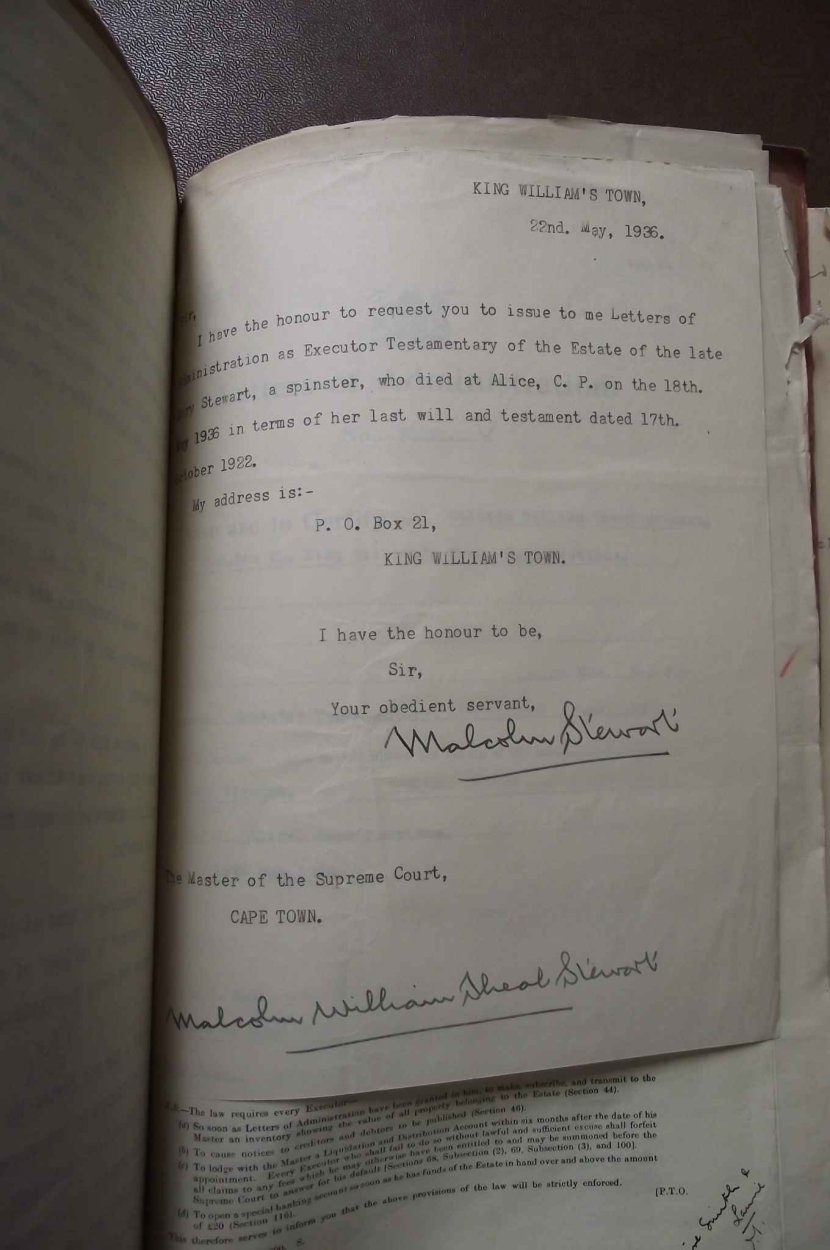 KING WILLIAM'S TOWN,
22nd. May, 1936.
I have the honour to request you to issue to me Letters of
Administration as Executor Testamentary of the Estate of the late
Stewart, a spinster, who died at Alice, C. P. on the 18th.
1936 in terms of her last will and testament dated 17th.
October 1922.
My address is:-
P. O. Box 21,
KING WILLIAM'S TOWN.
I have the honour to be,
Sir,
Your obedient servant,
Malcolm Stewart
The Master of the Supreme Court,
CAPE TOWN.
Malcolm William Sheal Stewart
—The law requires every Executor—
(a) So soon as Letters of Administration have been granted to him, to make, subscribe, and transmit to the
Master an inventory showing the value of all property belonging to the Estate (Section 44).
(b) To cause notices to creditors and debtors to be published (Section 46).
(c) To lodge with the Master a Liquidation and Distribution Account within six months after the date of his
appointment. Every Executor who shall fail to do so without lawful and sufficient excuse shall forfeit
all claims to any fees which he may otherwise have been entitled to and may be summoned before the
Supreme Court to answer for his default [Sections 68, Subsection (2), 69, Subsection (3), and 100].
(d) To open a special banking account so soon as he has funds of the Estate in hand over and above the amount
of £20 (Section 116).
This therefore serves to inform you that the above provisions of the law will be strictly enforced.
[P.T.O.
Smith &